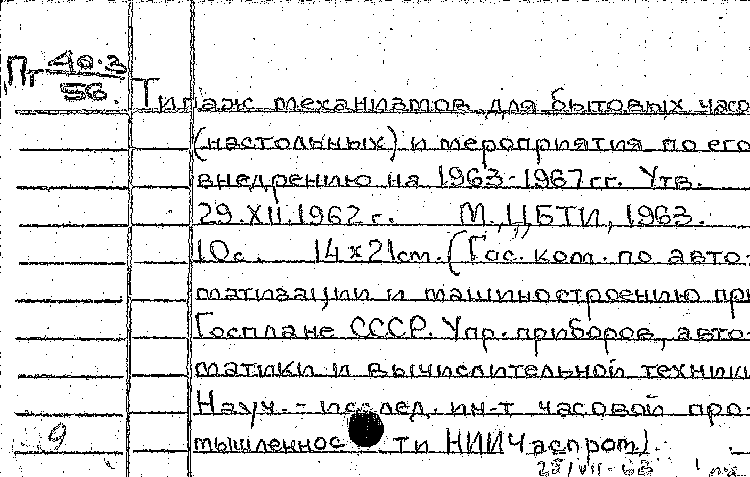 Пт 40.3
56.
Типаж механизмов для бытовых часо
(настольных) и мероприятия по его
внедрению на 1963-1967гг. Утв.
29.XII.1962г. М., ЦБТИ, 1963.
10с. 14x21см. (Гос. ком. по авто-
матизации и машиностроению при
Госплане СССР. Упр. приборов, авто-
матики и вычислительной техники
Науч.-исслед. ин-т часовой про-
9
мышленнос ти НИИЧаспром).
28/VII-63